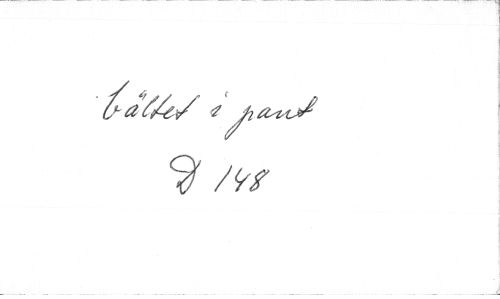 bältet i pant
D 148